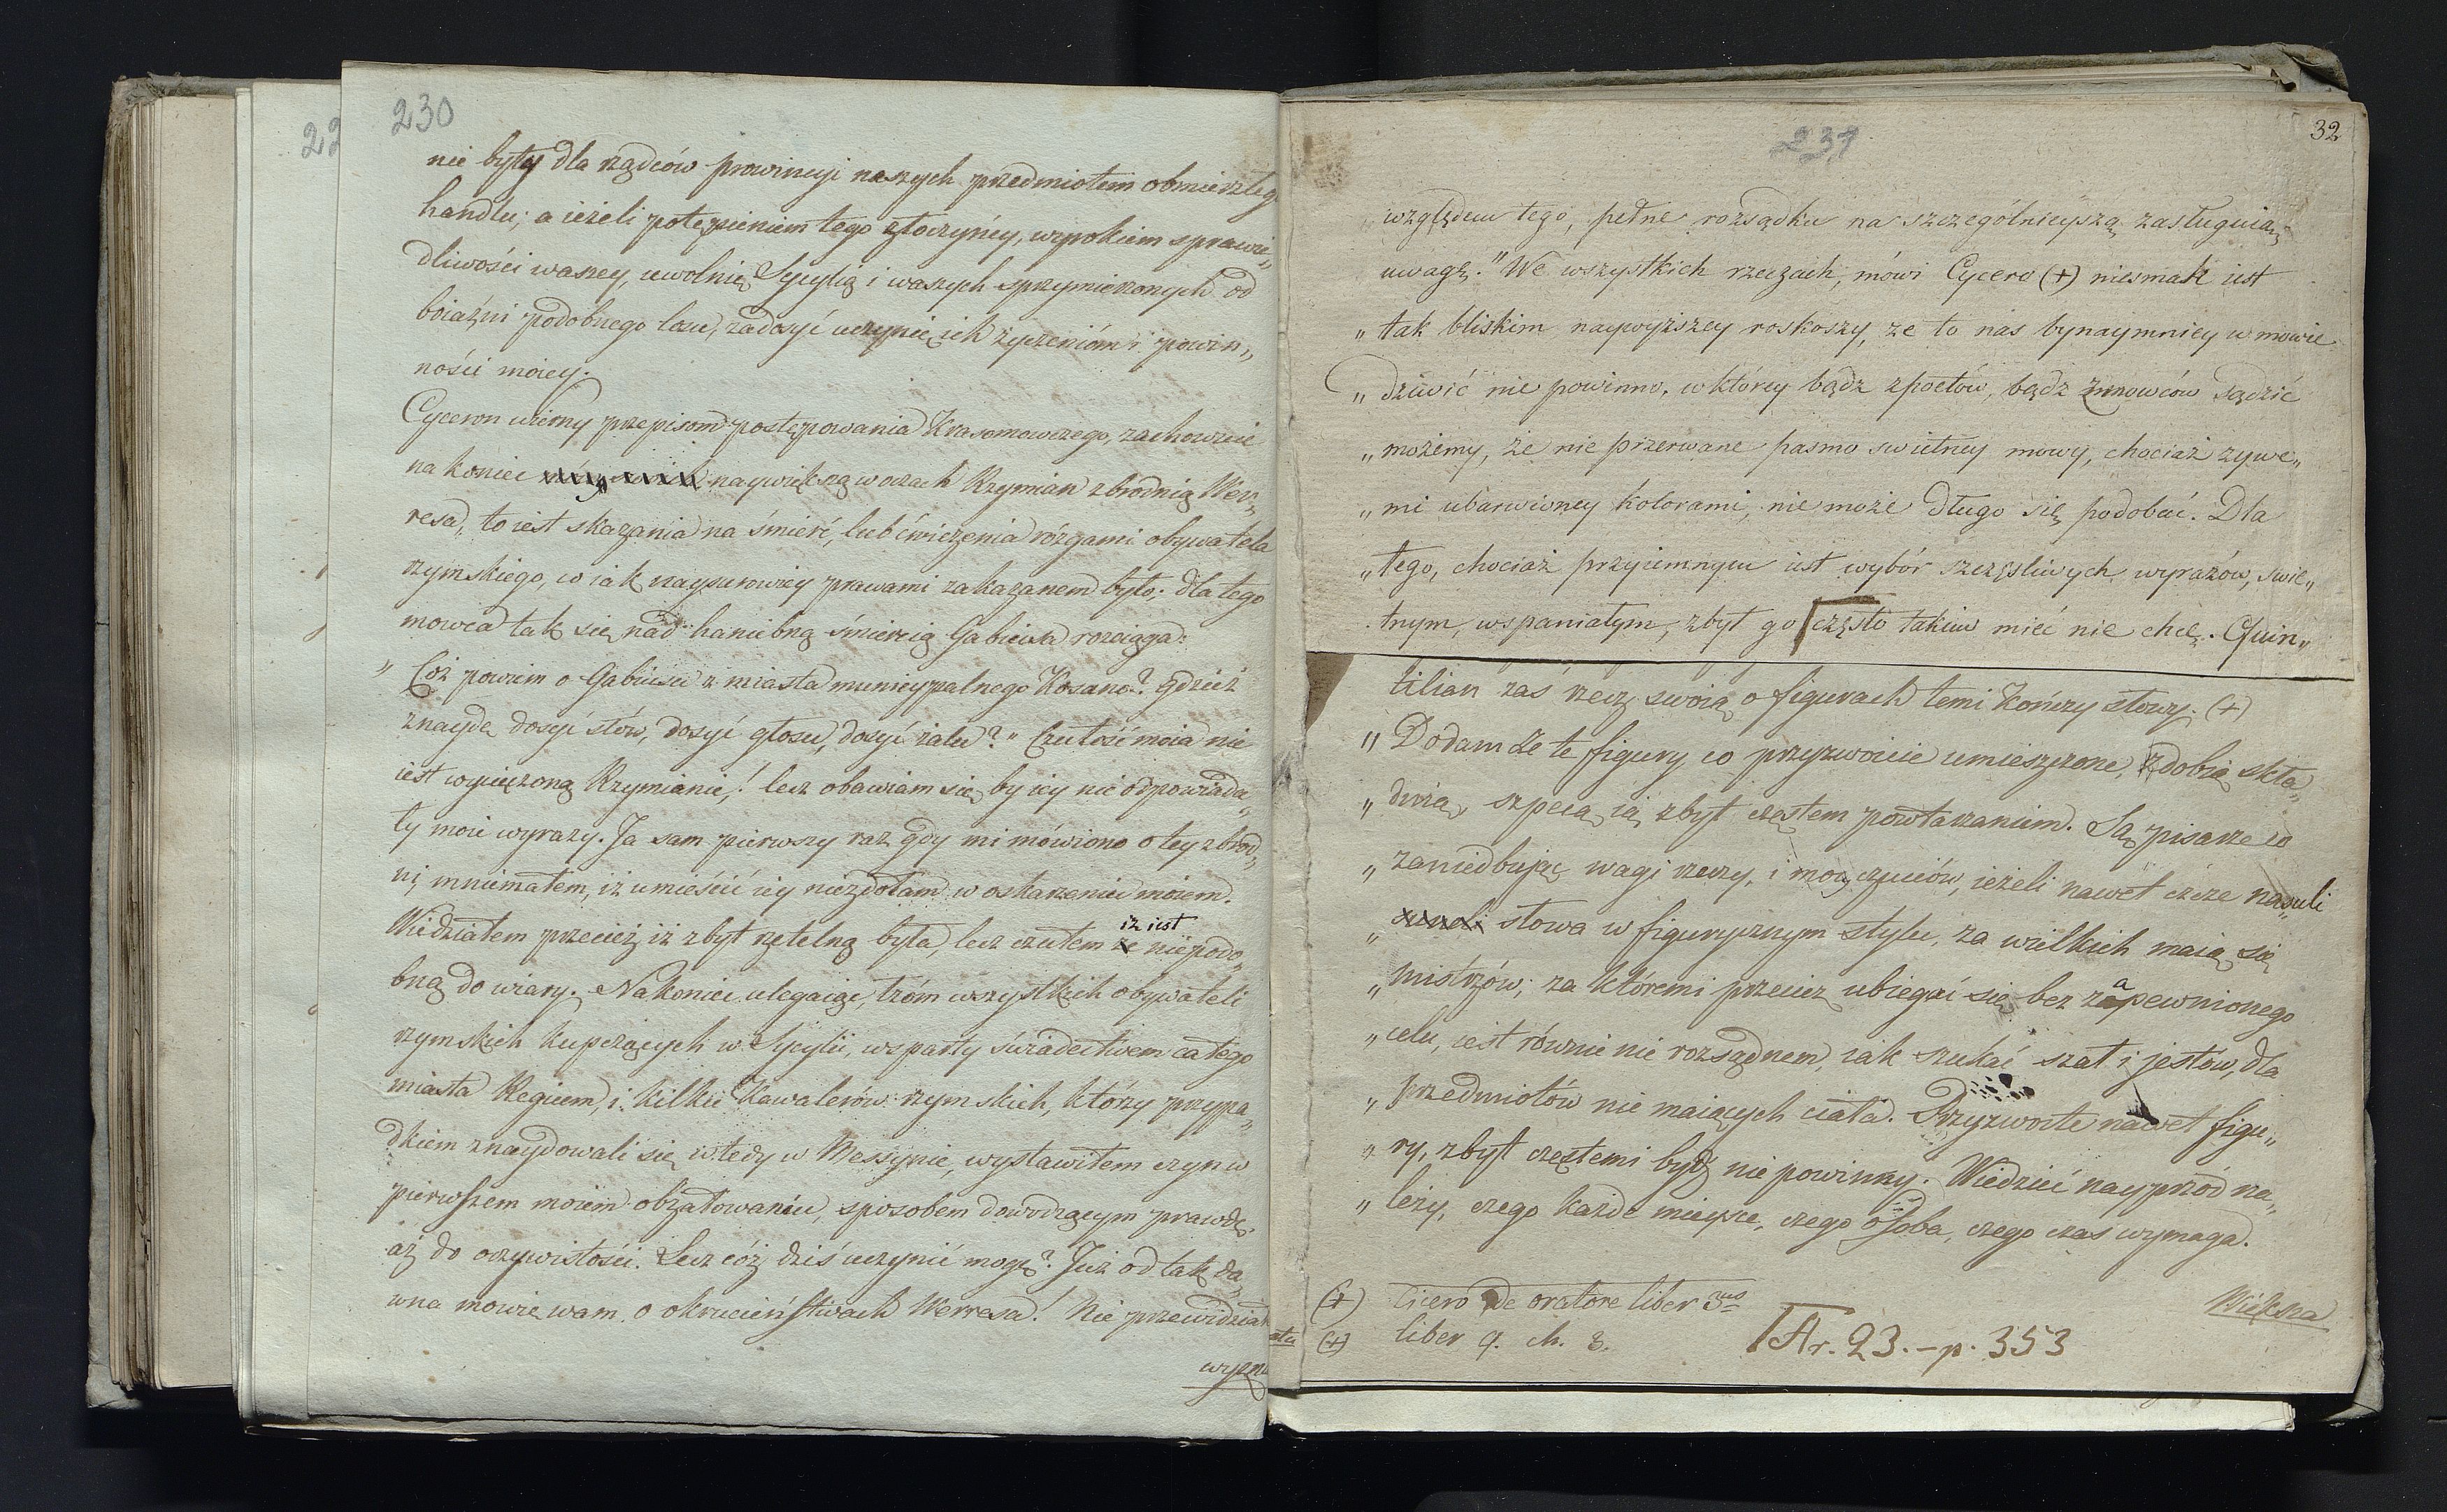 230
nie były dla rządców prowincyi naszych przedmiotem obmierzłeg
handlu; a ieżeli potępieniem tego złoczyńcy, wyrokiem sprawie„
dliwości waszey, uwolnię Sycylią i waszych sprzymierzonych od
boiaźni podobnego losu, zadosyć uczynię ich życzeniom i powin„
ności moiey.
Cyceron wierny przepisom postępowania Krasomowczego, zachowuie
na koniec naywiększą w oczach Rzymian zbrodnią Wer„
resa, to iest skazania na śmierć, lub ćwiczenia rózgami obywatela
rzymskiego, co iak naysurowiey prawami zakazanem było; dla tego
mowca tak się nad haniebną śmiercią Gabiusa rozciąga:
„ Cóż powiem o Gabiusie z miasta municypalnego Kosano? gdzież
znaydę dosyć słów, dosyć głosu, dosyć żalu?" Czułość moia nie
iest wycieńczoną Rzymianie,! lecz obawiam się by iey nie odpowiada„
ły moie wyrazy. Ja sam pierwszy raz gdy mi mówiono o tey zbrod„
ni, mniemałem, iż umieścić iey niezdołam w oskarzeniu moiem.
Wiedziałem przecież iż zbyt rzetelną była, lecz czułem że iż iest niepodo„
bną do wiary. Nakoniec ulegaiąc, łzóm wszystkich obywateli
rzymskich kupczących w Sycylii, wsparty świadectwem całego
miasta Regium, i kilku Kawalerów rzymskich, którzy przypa„
dkiem znaydowali się wtedy w Messynie, wystawiłem czyn w
pierwszem moiem obżałowaniu, sposobem dowodzącym prawdę
aż do oczywistości. Lecz cóż dziś uczynić mogę? Już od tak da„
wna mowię wam o okrucieństwach Werresa! Nie przewidział
wyczn
231
32
względem tego, pełne rozsądku na szczególnieyszą zasługuią
uwagę." We wszystkich rzeczach, mówi Cycero (+) niesmak iest
„ tak bliskim naywyższey roskoszy, ze to nas bynaymniey w mowie
„ dziwić nie powinno, w którey bądz z poetów, bądz z mowców sądzić
„ możemy, że nie przerwane pasmo swietney mowy, chociaż zywe„
„ mi ubarwioney kolorami, nie może długo się podobać. Dla
„ tego, chociaż przyiemnym iest wybór szczęsliwych wyrazów, swie„
tnym, wspaniałym, zbyt go często takim mieć nie chcę. Quin„
tilian zaś rzecz swoią o figurach temi kończy słowy. (+)
„ Dodam że te figury co przyzwoicie umieszczone, zdobią skła„
„ dnią, szpecą ią zbyt częstem powtarzaniem. Są pisarze co
„ zaniedbuiąc wagi rzeczy, i mocy czuciów, ieżeli nawet czcze nasuli
„ słowa w figurycznym stylu, za wielkich maią się
„ mistrzów; za któremi przecież ubiegać się bez zapewnionego
„ celu, iest równie nie rozsądnem, iak szukać szat i jestów, dla
„ przedmiotów nie maiących ciała. Przyzwoite nawet figu„
„ ry, zbyt częstemi bydź nie powinny. Wiedzieć nayprzód na„
„ leży, czego każde mieysce, czego osoba, czego czas wymaga.
(+) Cicero de oratore liber 3us
Większa
(+) liber 9. ch. 3.
Ar. 23. – p. 353